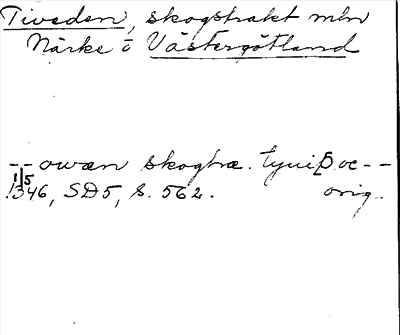 Tiveden, skogstrakt mln
Närke o Västergötland
-- owæn skoghæ. tyuiþ oc --
1/5 1346, SD5, s. 562. orig.